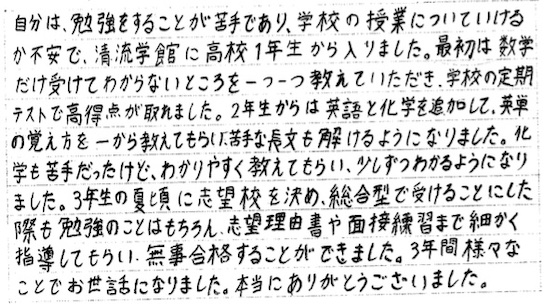 自分は、勉強をすることが苦手であり、学校の授業についていける
か不安で、清流学館に高校1年生から入りました。最初は数学
だけ受けてわからないところを一つ一つ教えていただき、学校の定期
テストで高得点が取れました。2年生からは英語と化学を追加して、英単
の覚え方を一から教えてもらい、苦手な長文も解けるようになりました。化
学も苦手だったけど、わかりやすく教えてもらい、少しずつわかるようになり
ました。3年生の夏頃に志望校を決め、総合型で受けることにした
際も勉強のことはもちろん、志望理由書や面接練習まで細かく
指導してもらい、無事合格することができました。3年間様々な
ことでお世話になりました。本当にありがとうございました。